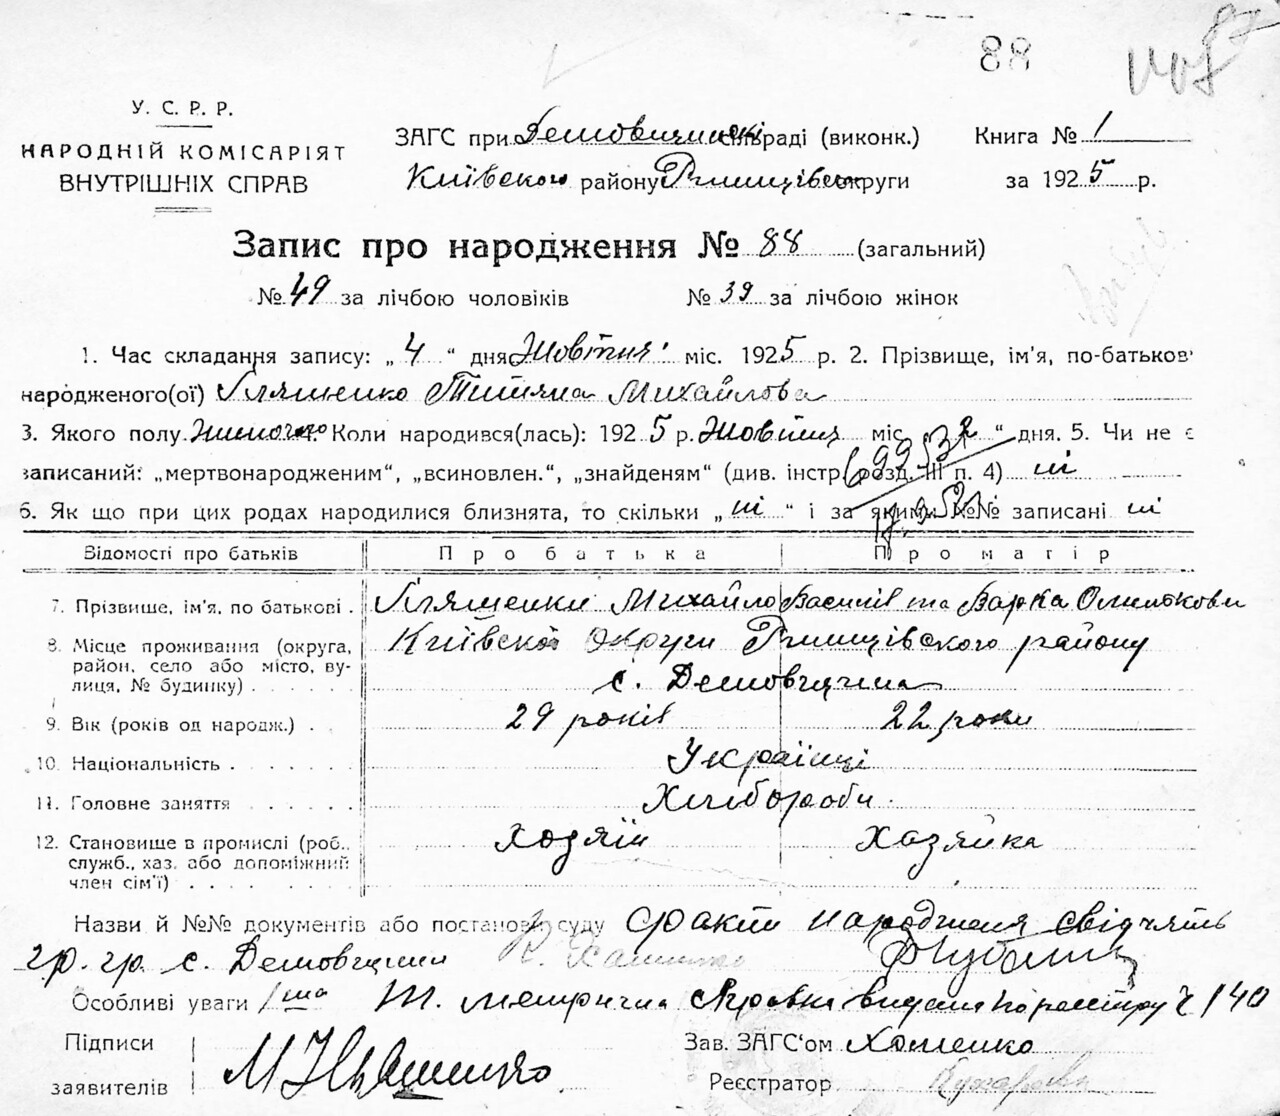 88
У. С. Р. Р.
НАРОДНІЙ КОМІСАРІЯТ
ВНУТРІШНІХ СПРАВ
ЗАГС при сільраді (виконк.)
Київского району округи
Книга № 1
за 1925 р.
Запис про народження № 88 (загальний)
№ 49 за лічбою чоловіків № 39 за лічбою жінок
1. Час складання запису: „4“ дня Жовтня міс. 1925 р. 2. Прізвище, ім’я, по-батьков
народженого(ої) Ляшенко Титяна Михайлова
3. Якого полу Жиночого 4. Коли народився(лась): 1925 р. Жовтня міс „ “ дня. 5. Чи не є
записаний: „мертвонародженим“, „всиновлен.“, „знайденям“ (див. інстр. розд. III п. 4) ні
6. Як що при цих родах народилися близнята, то скільки „ні“ і за якими №№ записані ні
Відомості про батьків Про батька Про матір
7. Прізвище, ім’я, по батькові . Ляшенки Михайло Василів та Варка
8. Місце проживання (округа, район, село або місто, вулиця, № будинку) . . . . . Київскоі Округи Ржищівского району
с. Демовщина
9. Вік (років од народж.) . . 29 років 22 роки
10. Національність . . . . . Українці
11. Головне заняття . . . . . Хлібороби
12. Становище в промислі (роб., служб., хаз. або допоміжний член сім’ї) . . . . . Хозяїн Хазяйка
Назви й №№ документів або постанови суду факт народження свідчять
гр. гр. с. Демовщини
Особливі уваги 1ша метрична видана по реєстру 140
Підписи
заявителів
М Ляшенко
Зав. ЗАГС‘ом Хоменко
Реєстратор